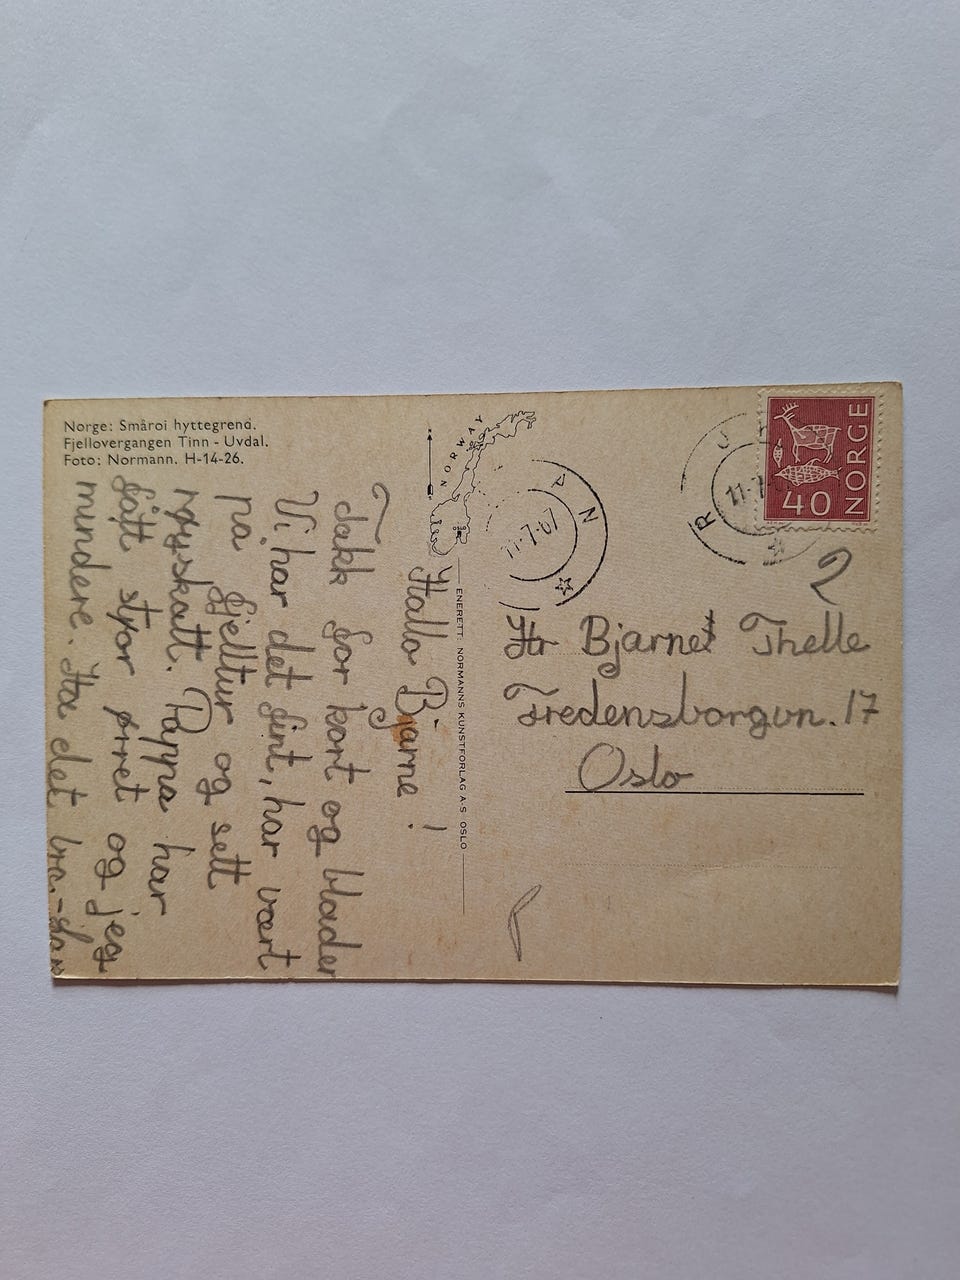 Norge: Småroi hyttegrend.
Fjellovergangen Tinn - Uvdal.
Foto: Normann. H-14-26.
NORWAY
OSLO
ENERETT: NORMANNS KUNSTFORLAG A·S OSLO
Hallo Bjarne!
Takk for kort og blader
Vi har det fint, har vært
på fjelltur og sett
røyskatt. Pappa har
fått stor ørret og jeg
mindre. Ha det bra.-
NORGE
40
11-7-67
2
Hr Bjarne Thelle
Fredensborgvn. 17
Oslo